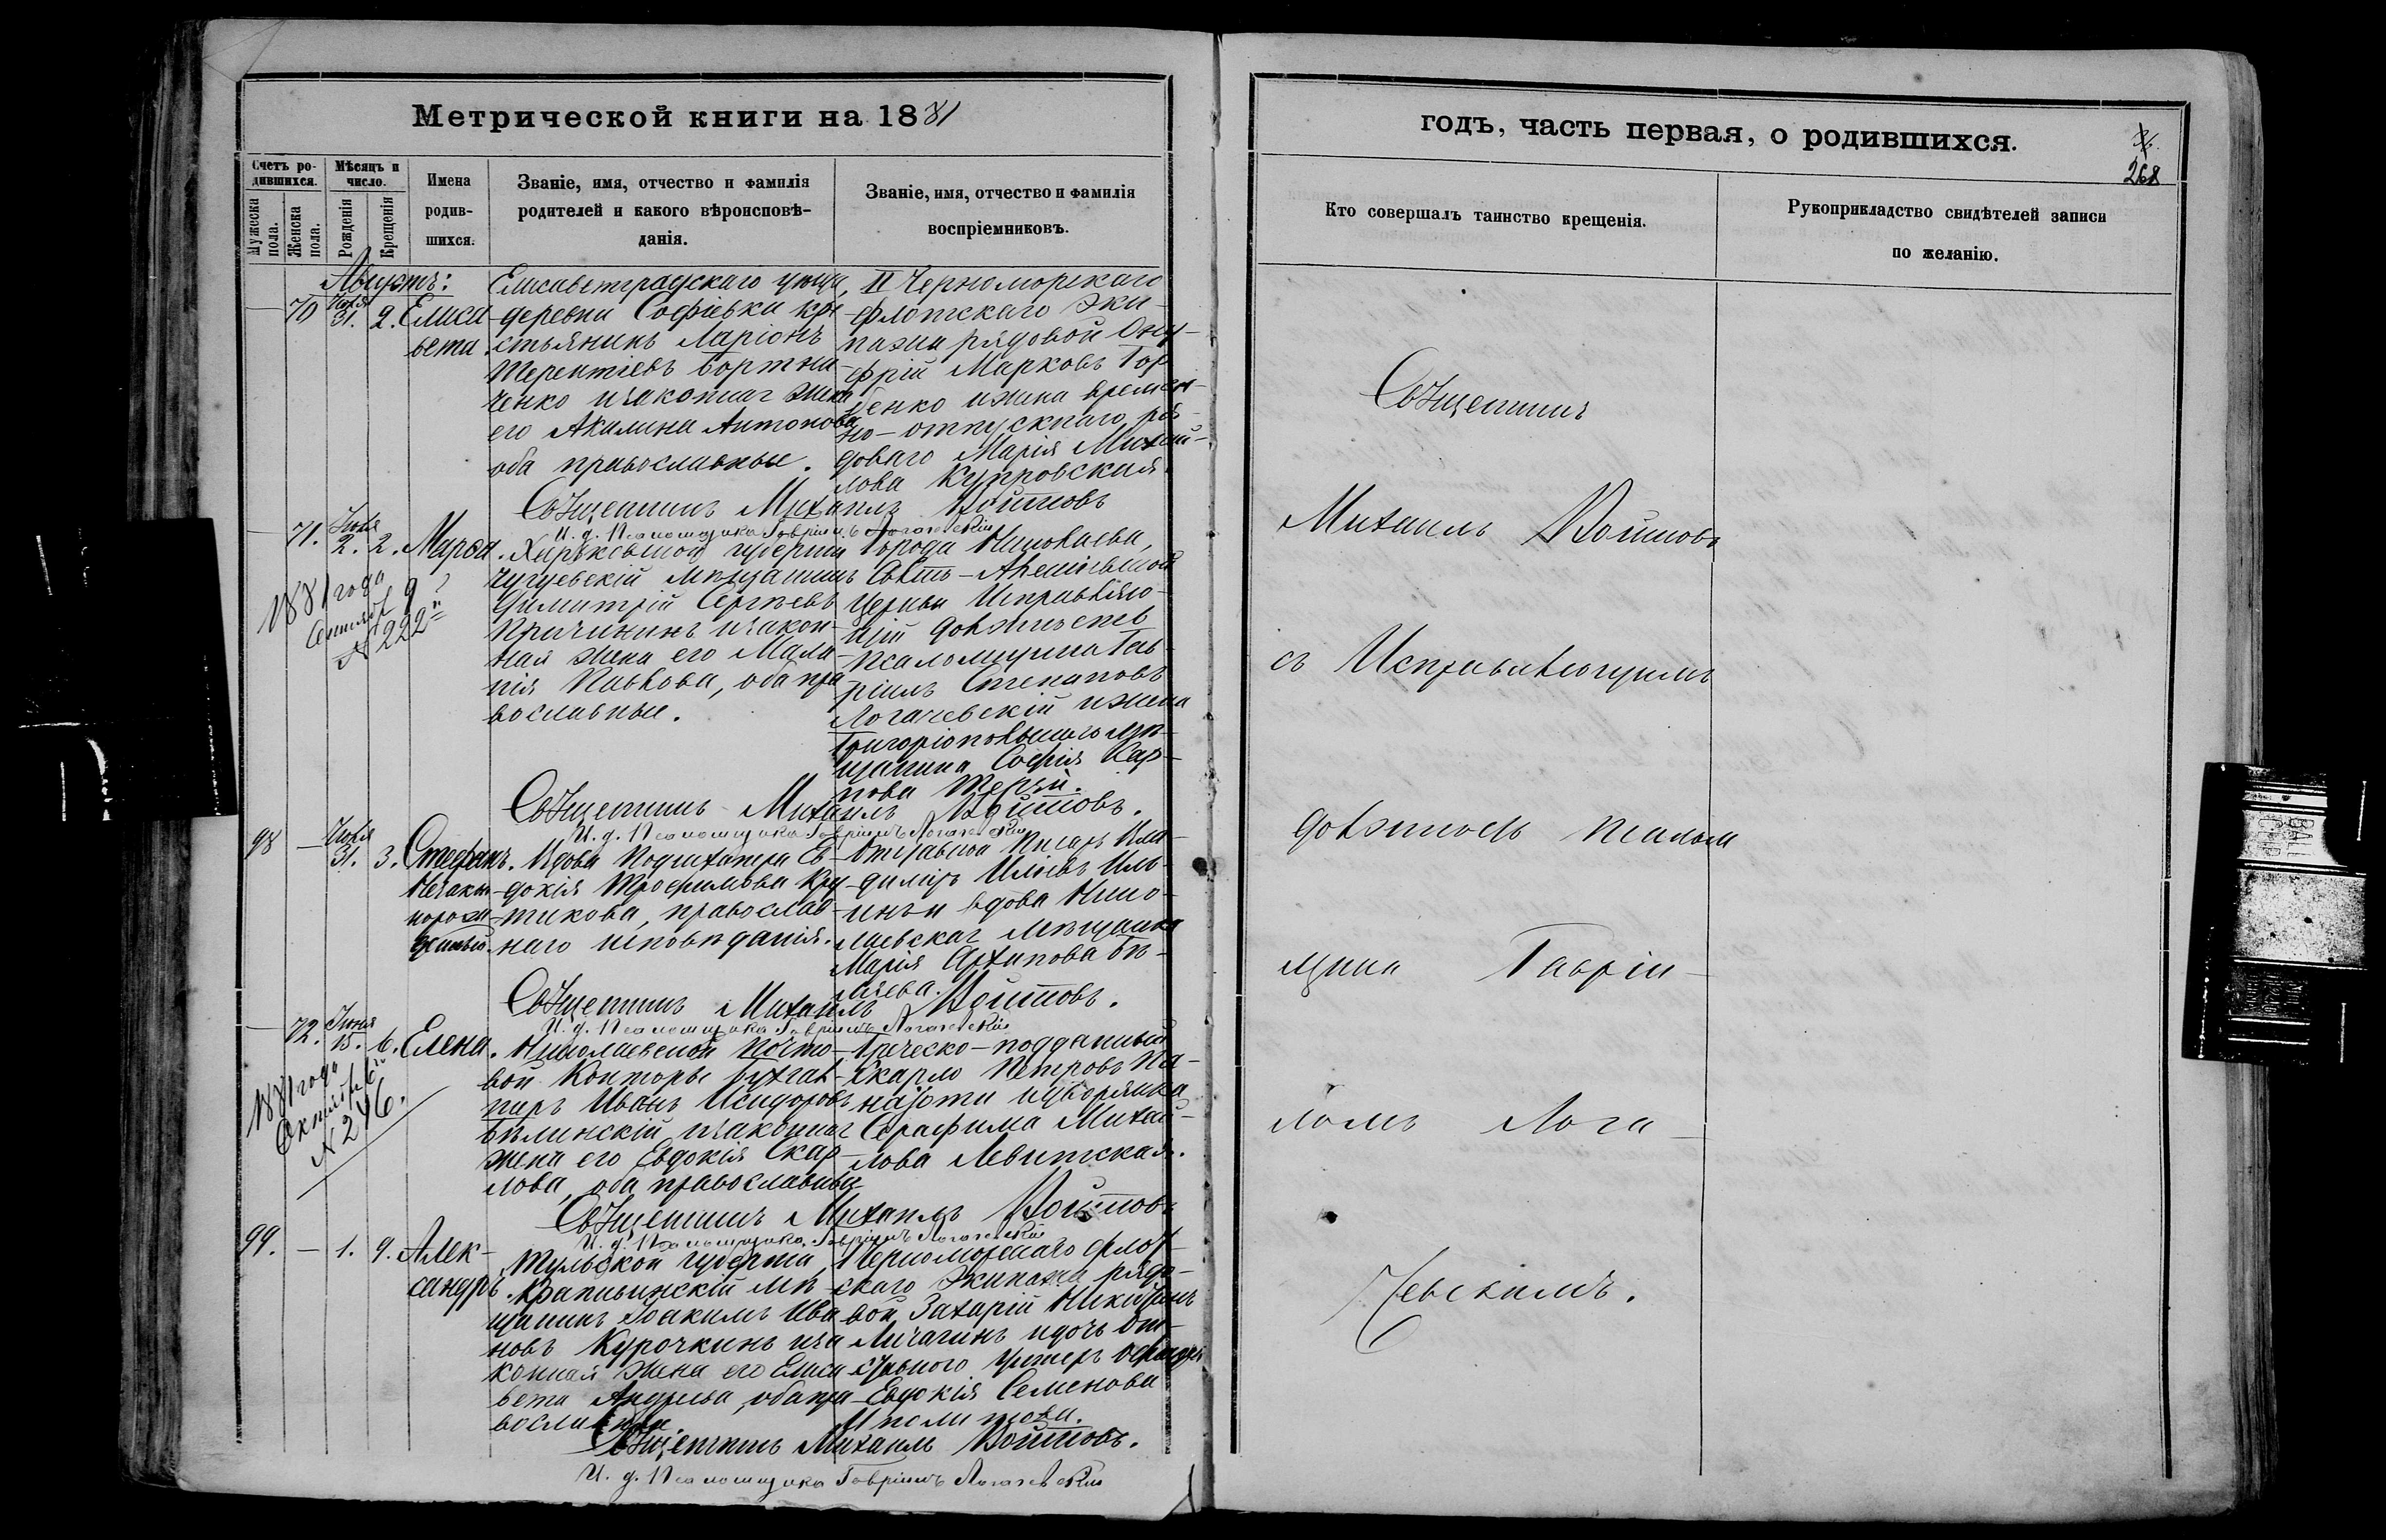 Метрической книги на 1881
Счетъ родившихся.
Мѣсяцъ и число.
Мужеска пола.
Женска пола.
Рожденія
Крещенія
Имена родившихся.
Званіе, имя, отчество и фамилія
родителей и какого вѣроисповѣ-
данія.
Званіе, имя, отчество и фамилія
воспріемниковъ.
Августъ:
— 70 Іюля 31. 2. Елиса
вета.
Елисаветградскаго уѣзда,
деревни Софіевки кре-
стьянинъ Ларіонъ
Терентіевъ Бортни-
ченко и законная жена
его Акилина Антонова
оба православные.
II Черноморскаго
флотскаго Эки-
пажа рядовой Ону-
фрій Марковъ Гор
денко и жена времен-
но-отпускнаго ря-
доваго Марія Михай-
лова Купровская.
Священникъ Михаилъ Войтовъ
И. д. Псаломщика Гавріилъ Логачевскій
— 71. Іюля 2. 2. Марѳа.
1881 года
Сентября 9
№ 222
Харьковской губерніи
Чугуевскій мѣщанинъ
Димитрій Сергѣевъ
Причининъ и закон-
ная жена его Мала-
нія Павлова, оба пра
вославные.
Города Николаева,
Церкви Исправляю-
щій должность
псаломщика Гав-
ріилъ Степановъ
Логачевскій и жена
Григоріопольскаго мѣ-
щанина Софія Кар-
пова
Священникъ Михаилъ Войтовъ.
И. д. Псаломщика Гавріилъ Логачевскій
98 — Іюля 31. 3. Стефанъ.
Незакон-
норож-
денный.
Вдова Подшхипера Ев-
докія Трофимова Кру-
тикова, православ-
наго исповѣданія.
Отставной Писарь Вла-
диміръ Иліевъ Иль-
инъ и вдова Нико-
лаевская мѣщанка
Марія Архипова Бѣ-
ляева.
Священникъ Михаилъ Войтовъ.
И. д. Псаломщика Гавріилъ Логачевскій
— 72. Іюня 15. 6. Елена.
1881 года
Октября 6
№ 246.
Николаевской Почто-
вой Конторы Бухгал-
теръ Иванъ Исидоровъ
Бѣлинскій и законная
жена его Евдокія Скар-
лова, оба православные
Греческо-подданный
Скарло Петровъ Па-
наіоти и дворянка
Серафима Михай-
лова Левитская.
Священникъ Михаилъ Войтовъ
И. д. Псаломщика Гавріилъ Логачевскій
99. — 1. 9. Алек-
сандръ.
Тульской губерніи,
Крапивинскій мѣ-
щанинъ Іоакимъ Ива
новъ Курочкинъ и за
конная жена его Елиса
вета Андреева, оба пра
вославные
Черноморскаго флот-
скаго Экипажа рядо-
вой Захарій Никитинъ
Личагинъ и дочь От-
ставного Унтеръ Офицера
Евдокія Семенова
Иполитова.
Священникъ Михаилъ Войтовъ.
И. д. Псаломщика Гавріилъ Логачевскій
годъ, часть первая, о родившихся.
268
Кто совершалъ таинство крещенія.
Рукоприкладство свидѣтелей записи
по желанію.
Священникъ
Михаилъ Войтовъ
съ Исправляющимъ
должность псалом
щика Гавріи-
ломъ Лога-
чевскимъ.